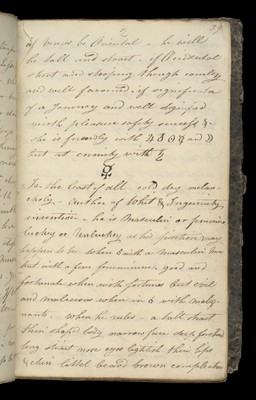 39
if Venus be Oriental - he will
be tall and stout - if Occidental
short and stooping though comely
and well favoured - if significator
of a Journey and well dignified
mirth pleasure safety success &c
she is friendly with ♃ ♂ ☿ and ☽
but at enmity with ♄
☿
Is the least of all cold dry melan-
choly - Author of Whit & Ingenuity
invention - he is Masculine or feminine
Luckey or Unluckey as his position may
happen to be when ☌ with a Masculine Masc
but with a fem femennine, good and
fortunate when with fortunes but evil
and malicious when in ☌ with malig-
nants - when he rules - a tall strait
thin shaped body narrow face deep forehead
long strait nose eyes lightish thin lips
& chin littel beard brown complection